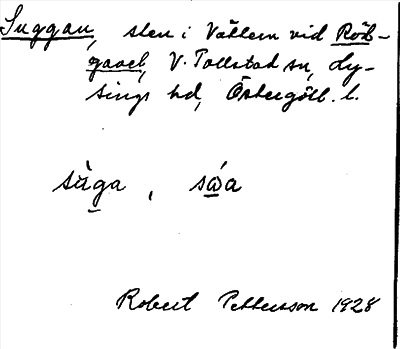 Suggan, sten i Vättern vid Röd-
gavel, V. Tollstad sn, Ly-
sings hd, Östergötl. l.
sùga, sάa
Robert Pettersson 1928